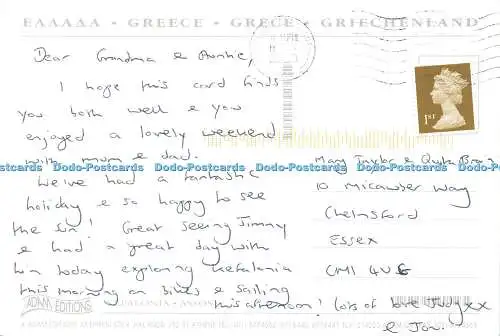 ΕΛΛΑΔΑ • GREECE • GRECE • GRIECHENLAND
Dear Grandma & Auntie,
I hope this card finds
you both well & you
enjoyed a lovely weekend
with mum & dad.
We've had a fantastic
holiday & so happy to see
the sun! Great seeing Jimmy
& had a great day with
him today exploring Kefalonia
this morning on bikes & sailing
this afternoon! Lots of love
& Jon
1ST
Mary Taylor &
10 Micawber Way
Chelmsford
ESSEX
CM1 4UG
Dodo-Postcards Dodo-Postcards Dodo-Postcards Dodo-Postcards Dodo-Postcards
ADAM EDITIONS